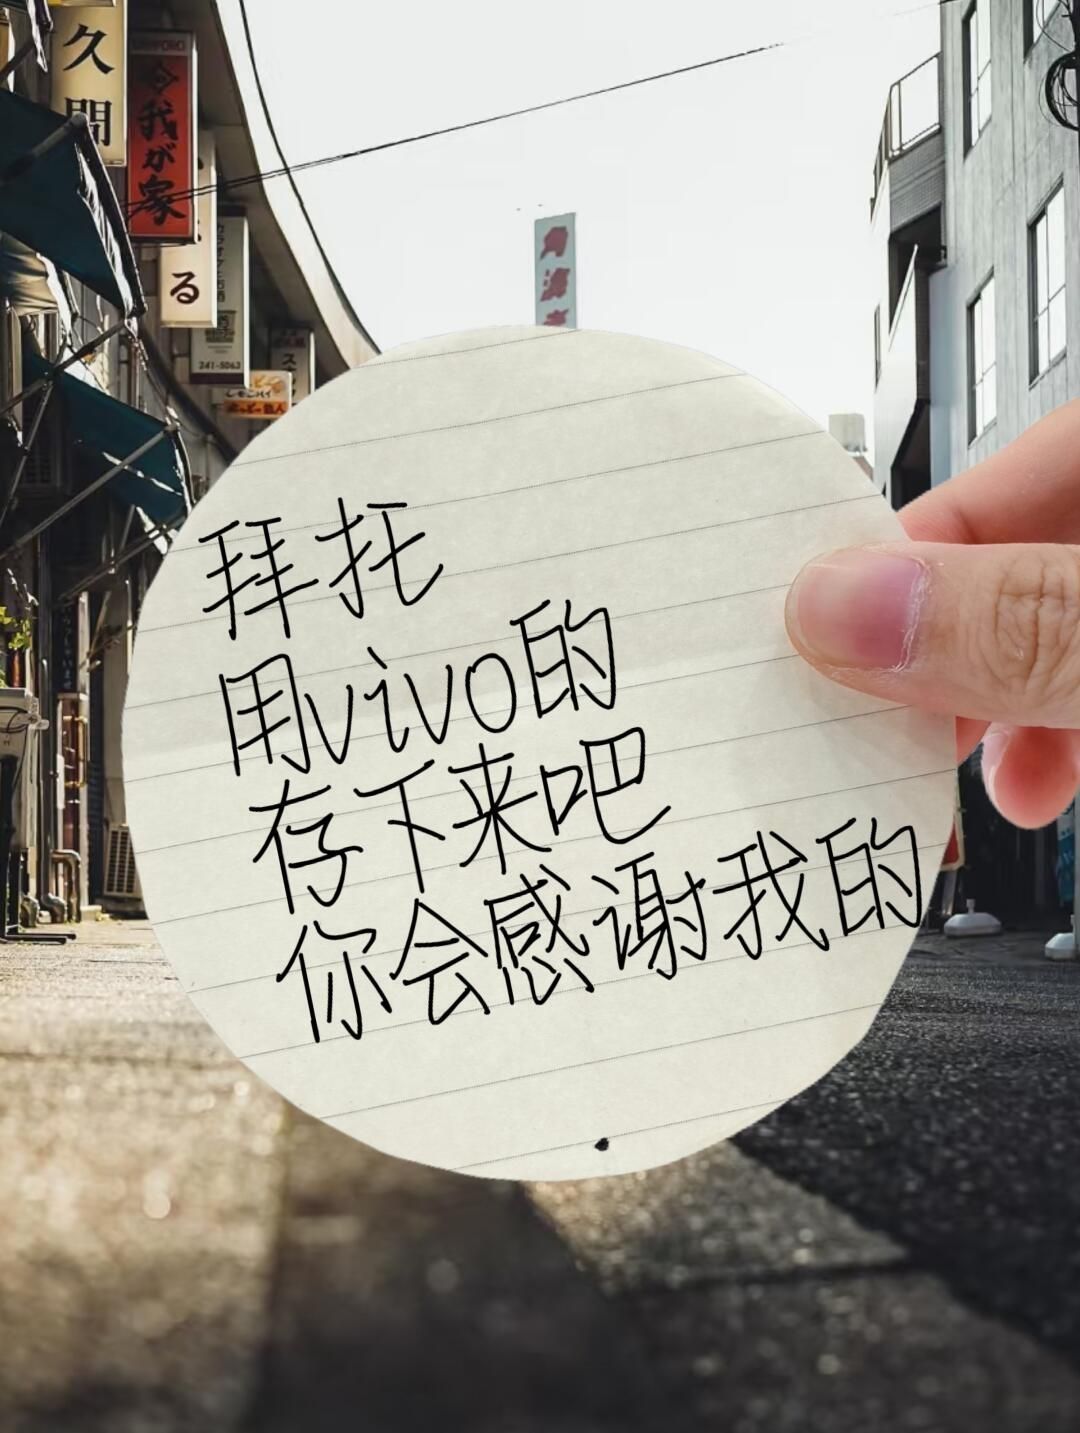 久間
我が家
る
241-5063
拜托
用vivo的
存下来吧
你会感谢我的